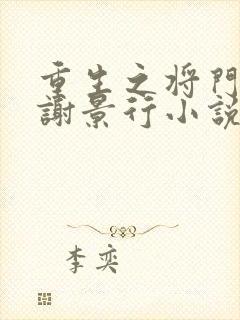 重生之将門
謝景行小說
李奕